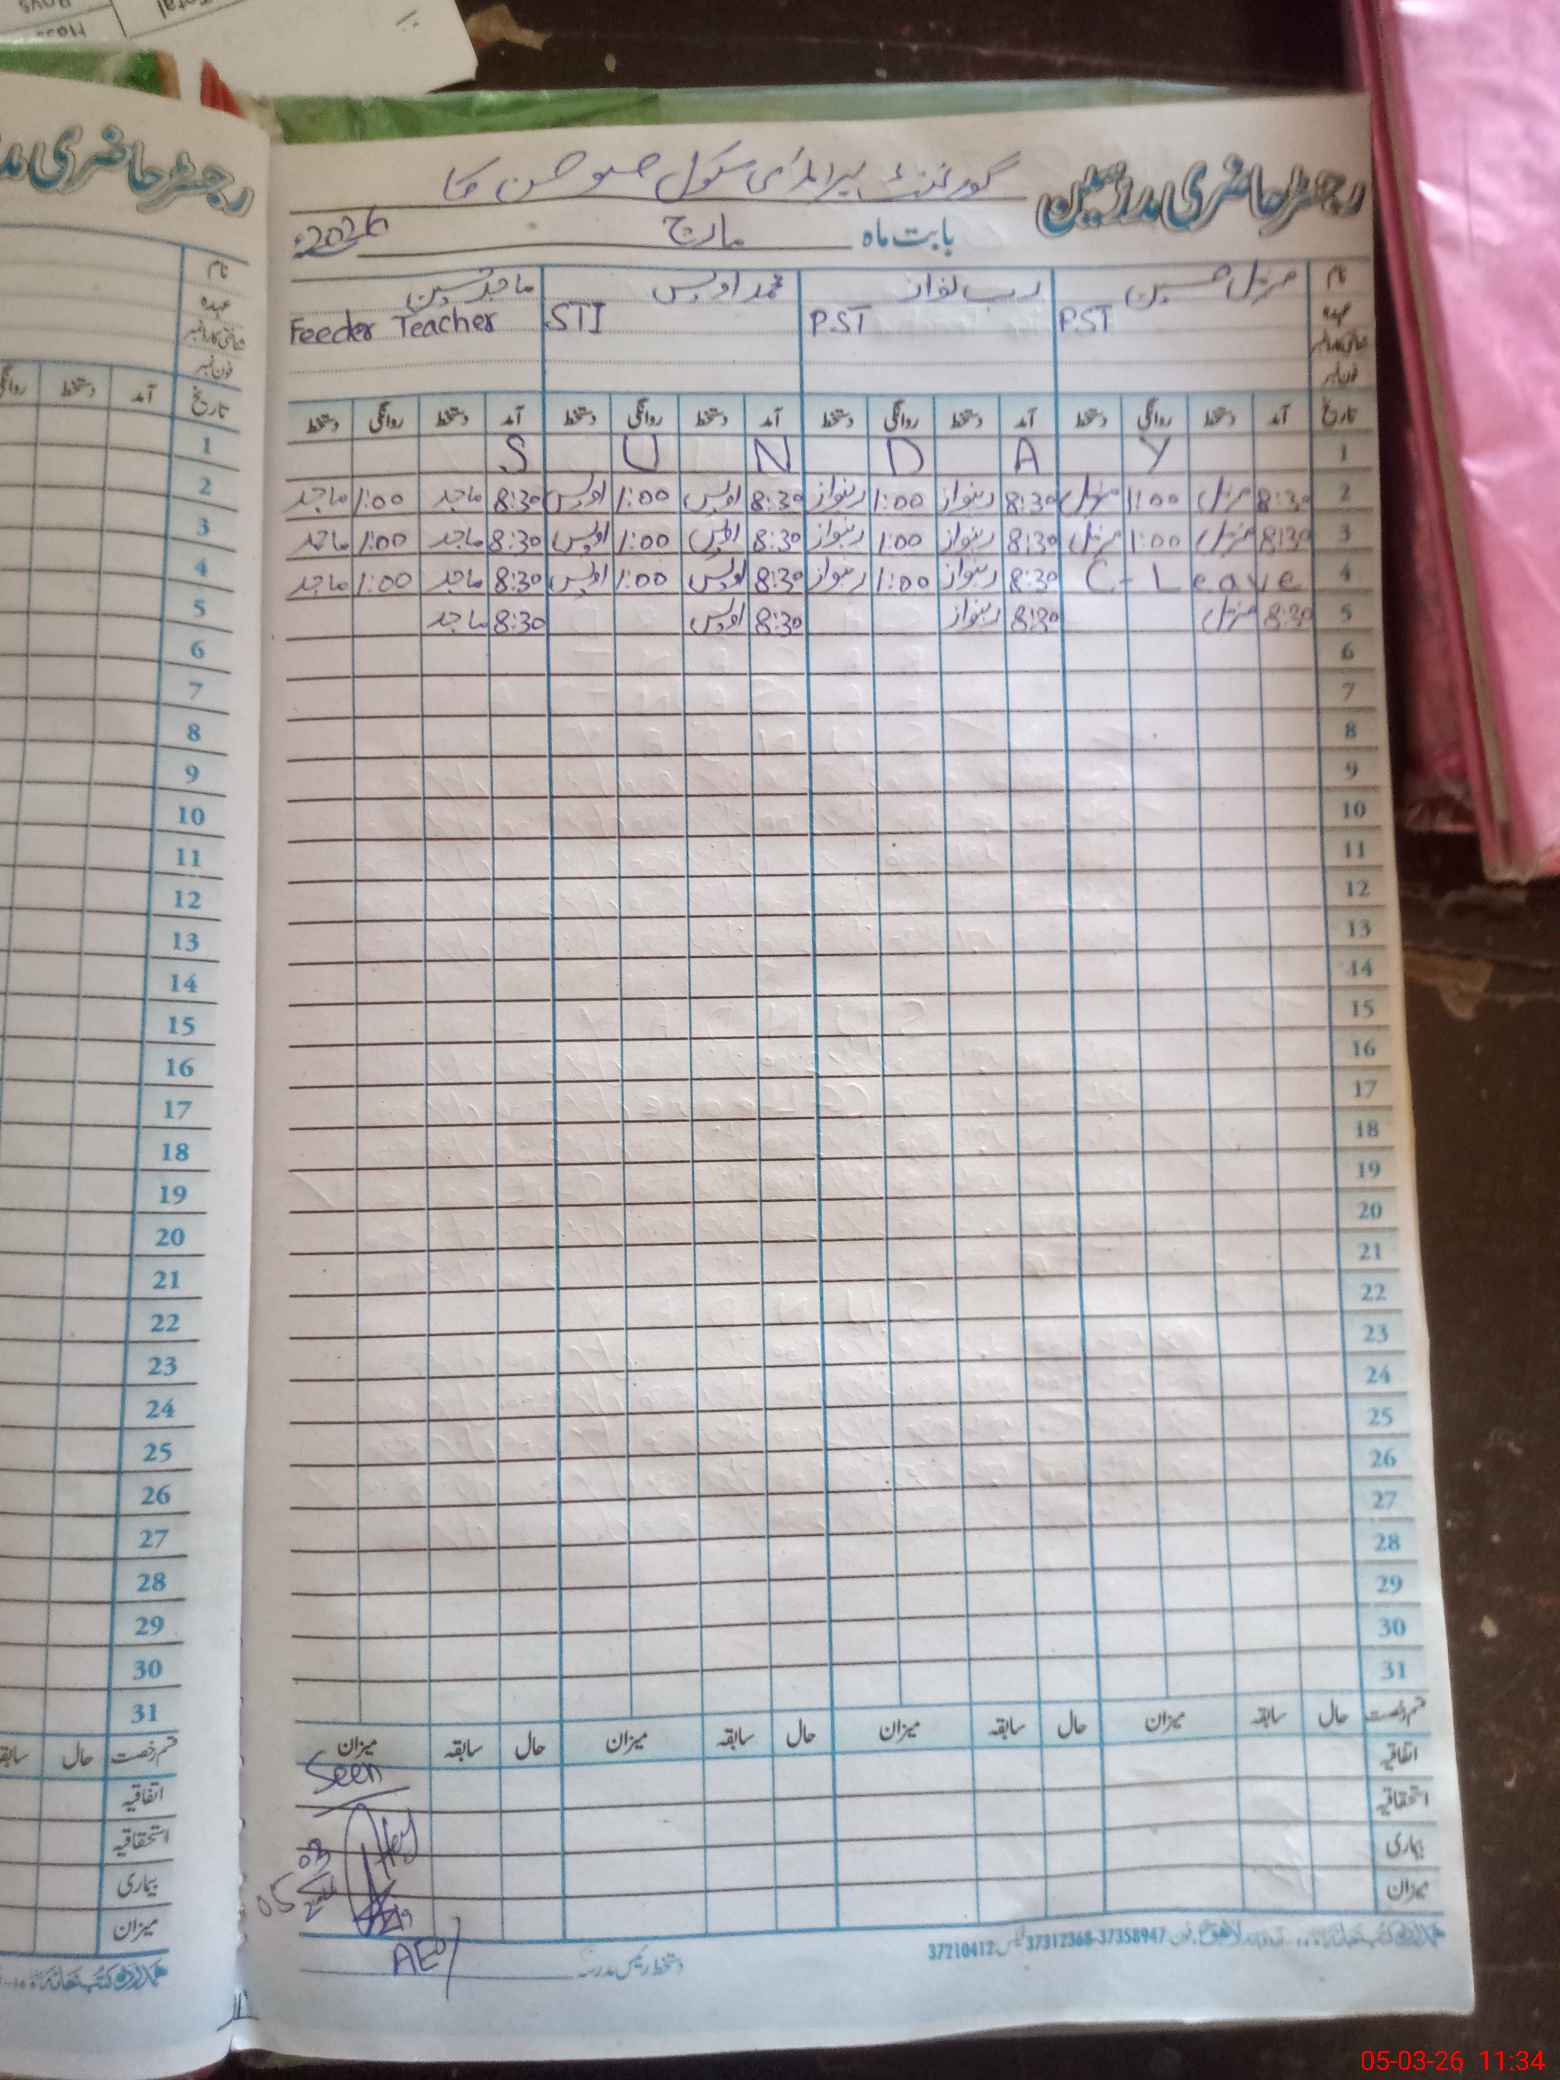 رجسٹر حاضری مدرسین گورنمنٹ پرائمری سکول
بابت ماہ مارچ 2026ء
نام مزمل حسین رب نواز محمد اویس ماجد حسین
عہدہ PST PST STI Feeder Teacher
شناختی کارڈ نمبر
فون نمبر
تاریخ آمد دستخط روانگی دستخط آمد دستخط روانگی دستخط آمد دستخط روانگی دستخط آمد دستخط روانگی دستخط
1 S U N D A Y
2 8:30 مزمل 1:00 مزمل 8:30 ربنواز 1:00 ربنواز 8:30 اویس 1:00 اویس 8:30 ماجد 1:00 ماجد
3 8:30 مزمل 1:00 مزمل 8:30 ربنواز 1:00 ربنواز 8:30 اویس 1:00 اویس 8:30 ماجد 1:00 ماجد
4 C-Leave 8:30 ربنواز 1:00 ربنواز 8:30 اویس 1:00 اویس 8:30 ماجد 1:00 ماجد
5 8:30 مزمل 8:30 ربنواز 8:30 اویس 8:30 ماجد
6
7
8
9
10
11
12
13
14
15
16
17
18
19
20
21
22
23
24
25
26
27
28
29
30
31
قسم رخصت حال سابقہ میزان حال سابقہ میزان حال سابقہ میزان حال سابقہ میزان
اتفاقیہ
استحقاقیہ
بیماری
میزان
Seen
05 03
AEO
دستخط رئیس مدرسہ
ہمدرد کتب خانہ لاہور فون 37358947-37312368 فیکس 37210412
رجسٹر حاضری
نام
عہدہ
شناختی کارڈ نمبر
فون نمبر
تاریخ آمد دستخط
1
2
3
4
5
6
7
8
9
10
11
12
13
14
15
16
17
18
19
20
21
22
23
24
25
26
27
28
29
30
31
قسم رخصت حال
اتفاقیہ
استحقاقیہ
بیماری
میزان
ہمدرد کتب خانہ
Total
Boys
05-03-26 11:34